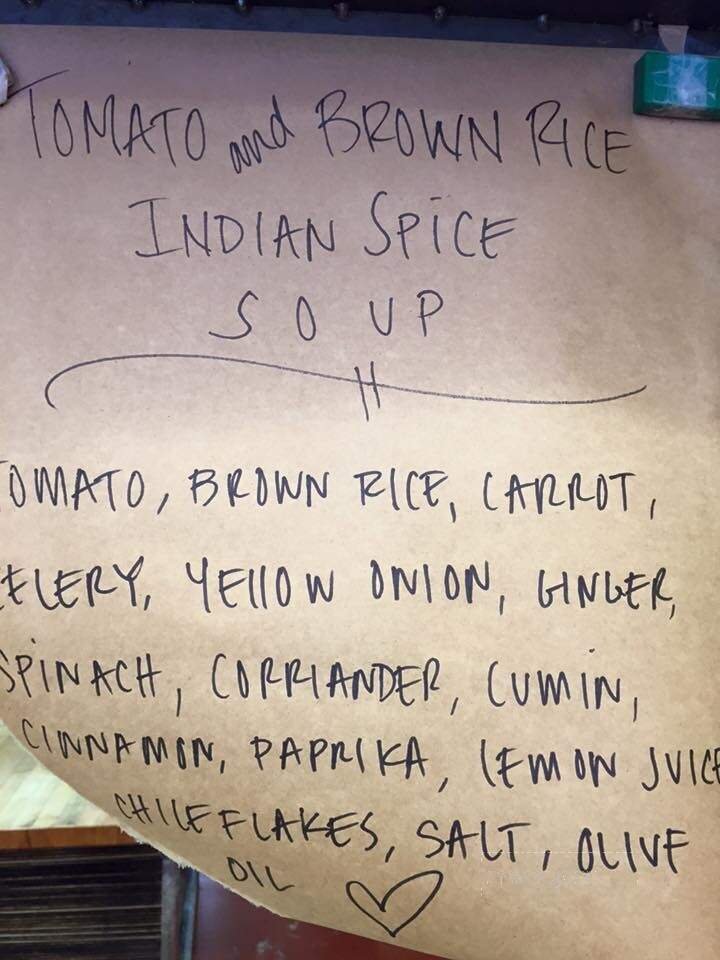 TOMATO and BROWN RICE
INDIAN SPICE
SOUP
TOMATO, BROWN RICE, CARROT,
CELERY, YELLOW ONION, GINGER,
SPINACH, CORRIANDER, CUMIN,
CINNAMON, PAPRIKA, LEMON JUICE
CHILE FLAKES, SALT, OLIVE
OIL